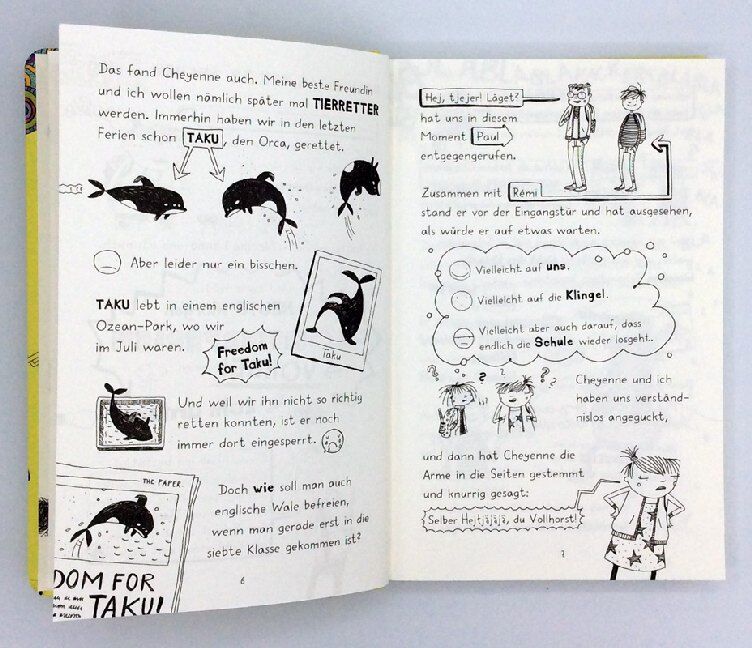 Das fand Cheyenne auch. Meine beste Freundin
und ich wollen nämlich später mal TIERRETTER
werden. Immerhin haben wir in den letzten
Ferien schon TAKU, den Orca, gerettet.
Aber leider nur ein bisschen.
TAKU lebt in einem englischen
Ozean-Park, wo wir
im Juli waren.
Freedom
for Taku!
Taku
Und weil wir ihn nicht so richtig
retten konnten, ist er noch
immer dort eingesperrt.
THE PAPER
Doch wie soll man auch
englische Wale befreien,
wenn man gerade erst in die
siebte Klasse gekommen ist?
DOM FOR
TAKU!
6
Hej, tjejer! Läget?
hat uns in diesem
Moment Paul
entgegengerufen.
Zusammen mit Rémi
stand er vor der Eingangstür und hat ausgesehen,
als würde er auf etwas warten.
Vielleicht auf uns.
Vielleicht auf die Klingel.
Vielleicht aber auch darauf, dass
endlich die Schule wieder losgeht..
? ? ? ?
Cheyenne und ich
haben uns verständ-
nislos angeguckt,
und dann hat Cheyenne die
Arme in die Seiten gestemmt
und knurrig gesagt:
Selber Hejtjäjäjä, du Vollhorst!
7